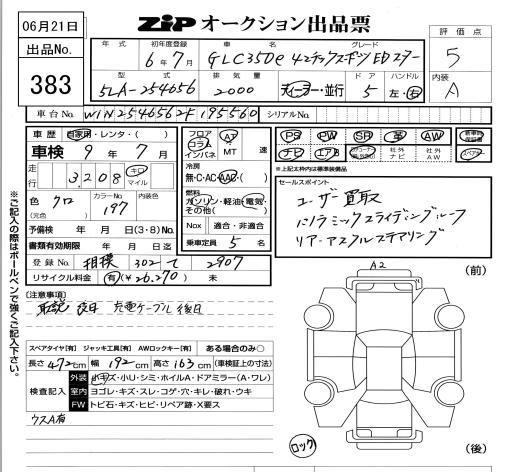 06月21日
ZIP オークション出品票
出品No.
383
年式
初年度登録
6年7月
車名
グレード
GLC350e 4マチックスポーツ EDスター
評価点
5
型式
5LA-254656
排気量
2000
ディーラー・並行
ドア
5
ハンドル
左・右
内装
A
車台No.
W1N2546562F195560
シリアルNo.
車歴
自家用・レンタ・( )
車検 9年7月
走行
3,208
キロ
マイル
色
クロ
(元色)
カラーNo.
197
内装色
予備検 年 月 日(3・8)No.
書類有効期限 年 月 日迄
登録No. 相模 302 て 2907
リサイクル料金 有(¥26,270) 未
フロア
コラム
インパネ
A7
MT
速
冷房
無・C・AC・AAC・( )
燃料
ガソリン・軽油・電気・
その他( )
Nox 適合・非適合
乗車定員 5 名
PS PW SR 革 AW
ナビ エアB
社外ナビ
社外AW
スペアキー
※上記太枠は標準装備品
セールスポイント
ユーザー買取
パノラミックスライディングルーフ
リアーアクスルステアリング
(注意事項)
取説 後日 充電ケーブル 後日
スペアタイヤ【有】 ジャッキ工具【有】 AWロックキー【有】 ある場合のみ〇
長さ 472cm 幅 192cm 高さ 163cm (車検証上の寸法)
検査記入
外装 キズ・小リ・シミ・ホイルA・ドアミラー(A・ワレ)
室内 ヨゴレ・キズ・スレ・コゲ・穴・キレ・破れ・ウキ
FW トビ石・キズ・ヒビ・リペア跡・X要ス
ウスA有
A2
(前)
(後)
ロック
※ご記入の際はボールペンで強くご記入下さい。